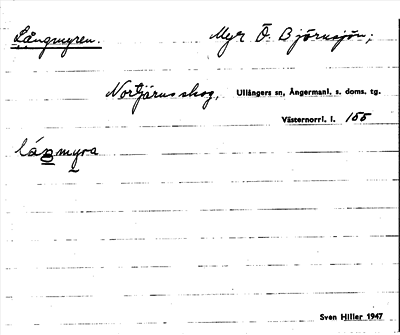 Långmyren. Myr Ö. Björnsjön;
Norrtjärns skog, Ullångers sn, Ångermanl. s. doms. tg.
Västernorrl. l. 155
låŋmyra
Sven Hiller 1947